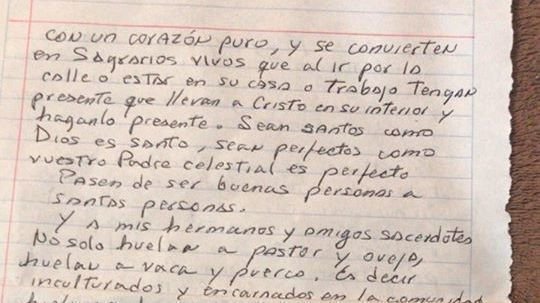 CON UN CORAZÓN PURO, y se convierten
en Sagrarios vivos que al ir por la
calle o estar en su casa o trabajo Tengan
presente que llevan a Cristo en su interior y
haganlo presente. Sean santos como
Dios es santo, sean perfectos como
vuestro Padre celestial es perfecto
Pasen de ser buenas personas a
santas personas.
Y a mis hermanos y amigos sacerdotes
No solo huelan a pastor y oveja,
huelan a vaca y puerco. Es decir
inculturados y encarnados en la comunidad